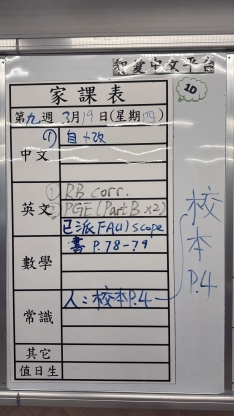 智愛中文平台
3D
家課表
第九週 3月19日(星期四)
中文 ① 自+改
英文 ① RB corr.
② PGE (Part B x2)
已派FA(1) scope
數學 書 P.78-79
常識 人：校本P.4
其它
值日生
校本P.4